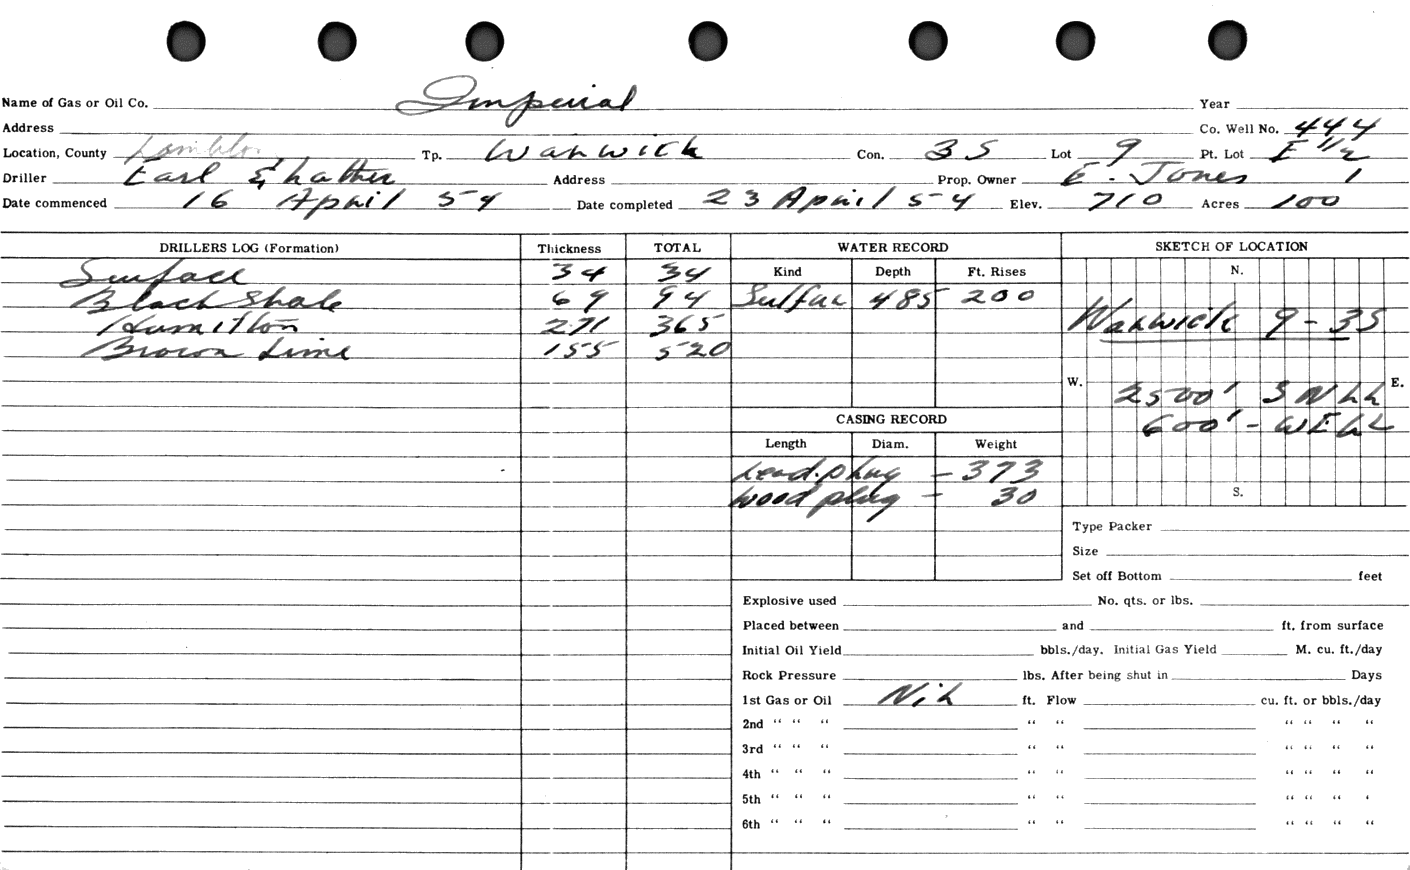 Name of Gas or Oil Co. Imperial Year
Address Co. Well No. 444
Location, County Lambton Tp. Warwick Con. 3S Lot 9 Pt. Lot E 1/2
Driller Earl Prop. Owner E. Jones
Address
Date commenced 16 April 54 Date completed 23 April 54 Elev. 710 Acres 100
DRILLERS LOG (Formation) Thickness TOTAL WATER RECORD SKETCH OF LOCATION
Kind Depth Ft. Rises N.
Surface 34 34
Black Shale 69 94 Sulfur 485 200
Hamilton 271 365 Warwick 9-3S
Brown Lime 155 520
W. E.
2500' SNLL
CASING RECORD 600' - WELL
Length Diam. Weight
Lead.plug - 373
wood plug - 30 S.
Type Packer
Size
Set off Bottom feet
Explosive used No. qts. or lbs.
Placed between and ft. from surface
Initial Oil Yield bbls./day. Initial Gas Yield M. cu. ft./day
Rock Pressure lbs. After being shut in Days
1st Gas or Oil Nil ft. Flow cu. ft. or bbls./day
2nd “ “ “ “ “ “ “ “ “
3rd “ “ “ “ “ “ “ “ “
4th “ “ “ “ “ “ “ “ “
5th “ “ “ “ “ “ “ “ ‘
6th “ “ “ “ “ “ “ “ “